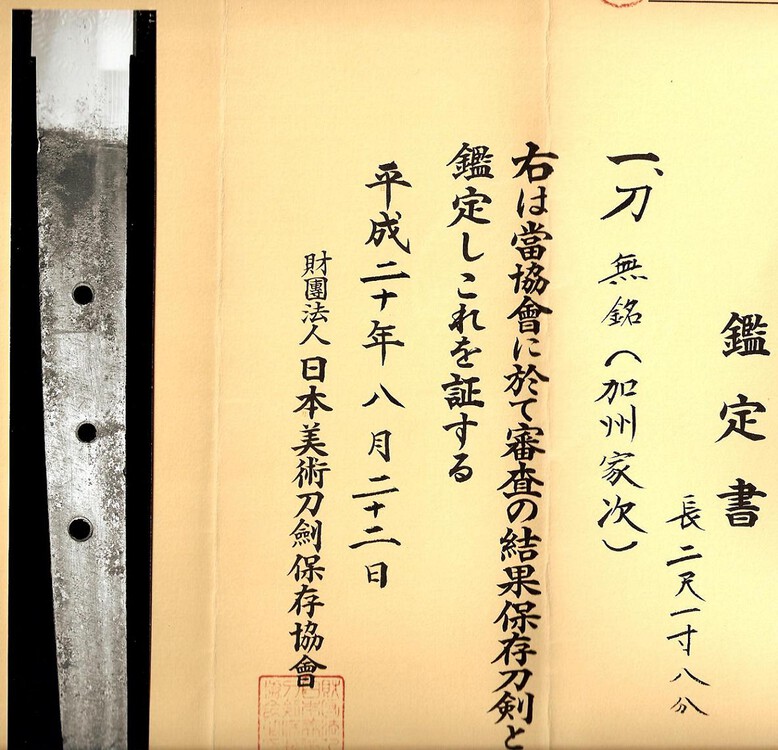 鑑定書
長二尺一寸八分
一、刀 無銘（加州家次）
右は當協會に於て審査の結果保存刀剣と
鑑定しこれを証する
平成二十年八月二十二日
財團法人日本美術刀劍保存協會